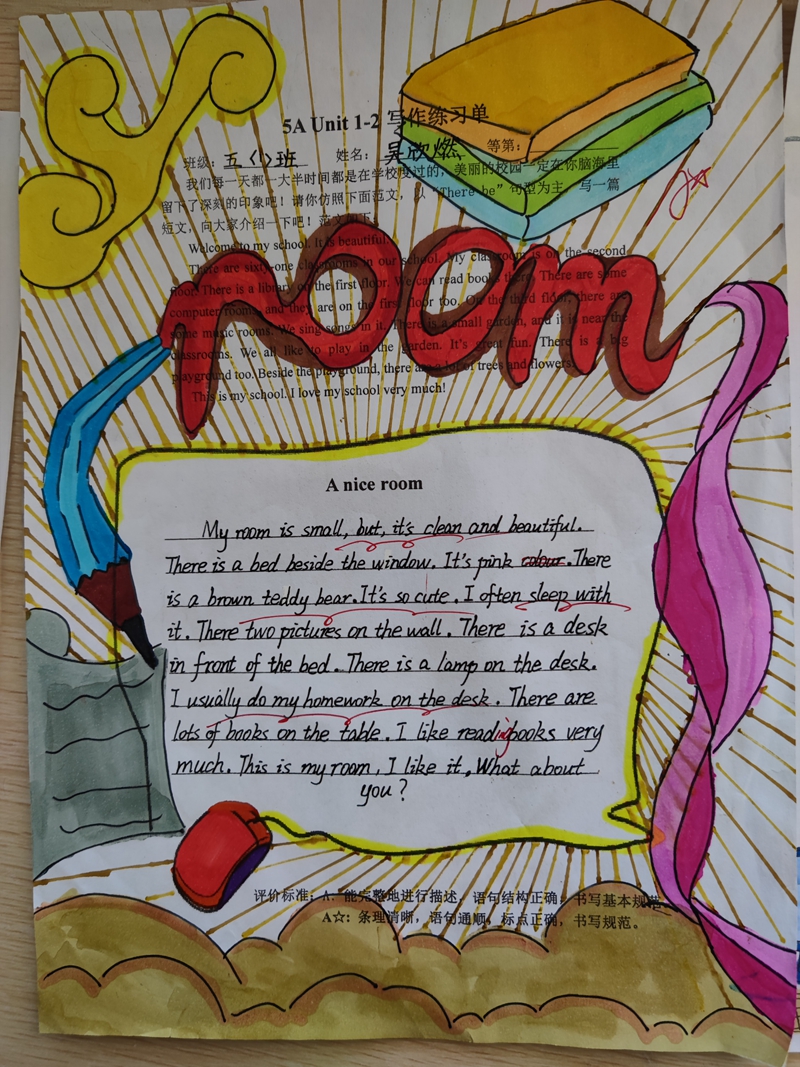 5A Unit 1-2 写作练习单
班级：五〈1〉班 姓名：吴欣燃 等第：
我们每一天都一大半时间都是在学校度过的，美丽的校园一定在你脑海里
留下了深刻的印象吧！请你仿照下面范文，以“There be”句型为主，写一篇
短文，向大家介绍一下吧！范文如下：
Welcome to my school. It is beautiful.
There are sixty-one classrooms in our school. My classroom is on the second
floor. There is a library on the first floor. We can read books there. There are some
computer rooms and they are on the first floor too. On the third floor, there are
some music rooms. We sing songs in it. There is a small garden, and it is near the
classrooms. We all like to play in the garden. It's great fun. There is a big
playground too. Beside the playground, there are a lot of trees and flowers.
This is my school. I love my school very much!
room
A nice room
My room is small, but, it's clean and beautiful.
There is a bed beside the window. It's pink colour. There
is a brown teddy bear. It's so cute. I often sleep with
it. There two pictures on the wall. There is a desk
in front of the bed. There is a lamp on the desk.
I usually do my homework on the desk. There are
lots of books on the table. I like reading books very
much. This is my room, I like it, What about
you?
评价标准：A：能完整地进行描述，语句结构正确，书写基本规范。
A☆：条理清晰，语句通顺，标点正确，书写规范。